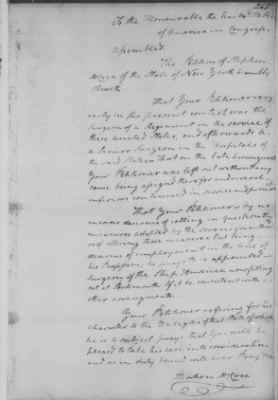 To the Honourable the United States
of America in Congress
assembled
The Petition of Stephen
McCrea of the State of New York humbly
Sheweth
That Your Petitioner very
early in the present contest was the
Surgeon of a Regiment in the service of
these United States, and afterwards a
Senior Surgeon in the Hospitals of
the said States That on the late arrangement
Your Petitioner was left out without any
cause being assigned therefor and several
continued in service and
That Your Petitioner is by no
means desirous of calling in question the
measures adopted by the Sovereign
of altering those measures but being
desirous of employment in the line of
his Profession, he begs to be appointed
Surgeon of the Ship America now fitting
out at Portsmouth if it be consistent with
other arrangements.
Your Petitioner referring for his
character to the Delegates of that State of which
he is a subject prays that You will be
pleased to take his case into consideration
and as in duty bound will ever Pray
Stephen McCrea